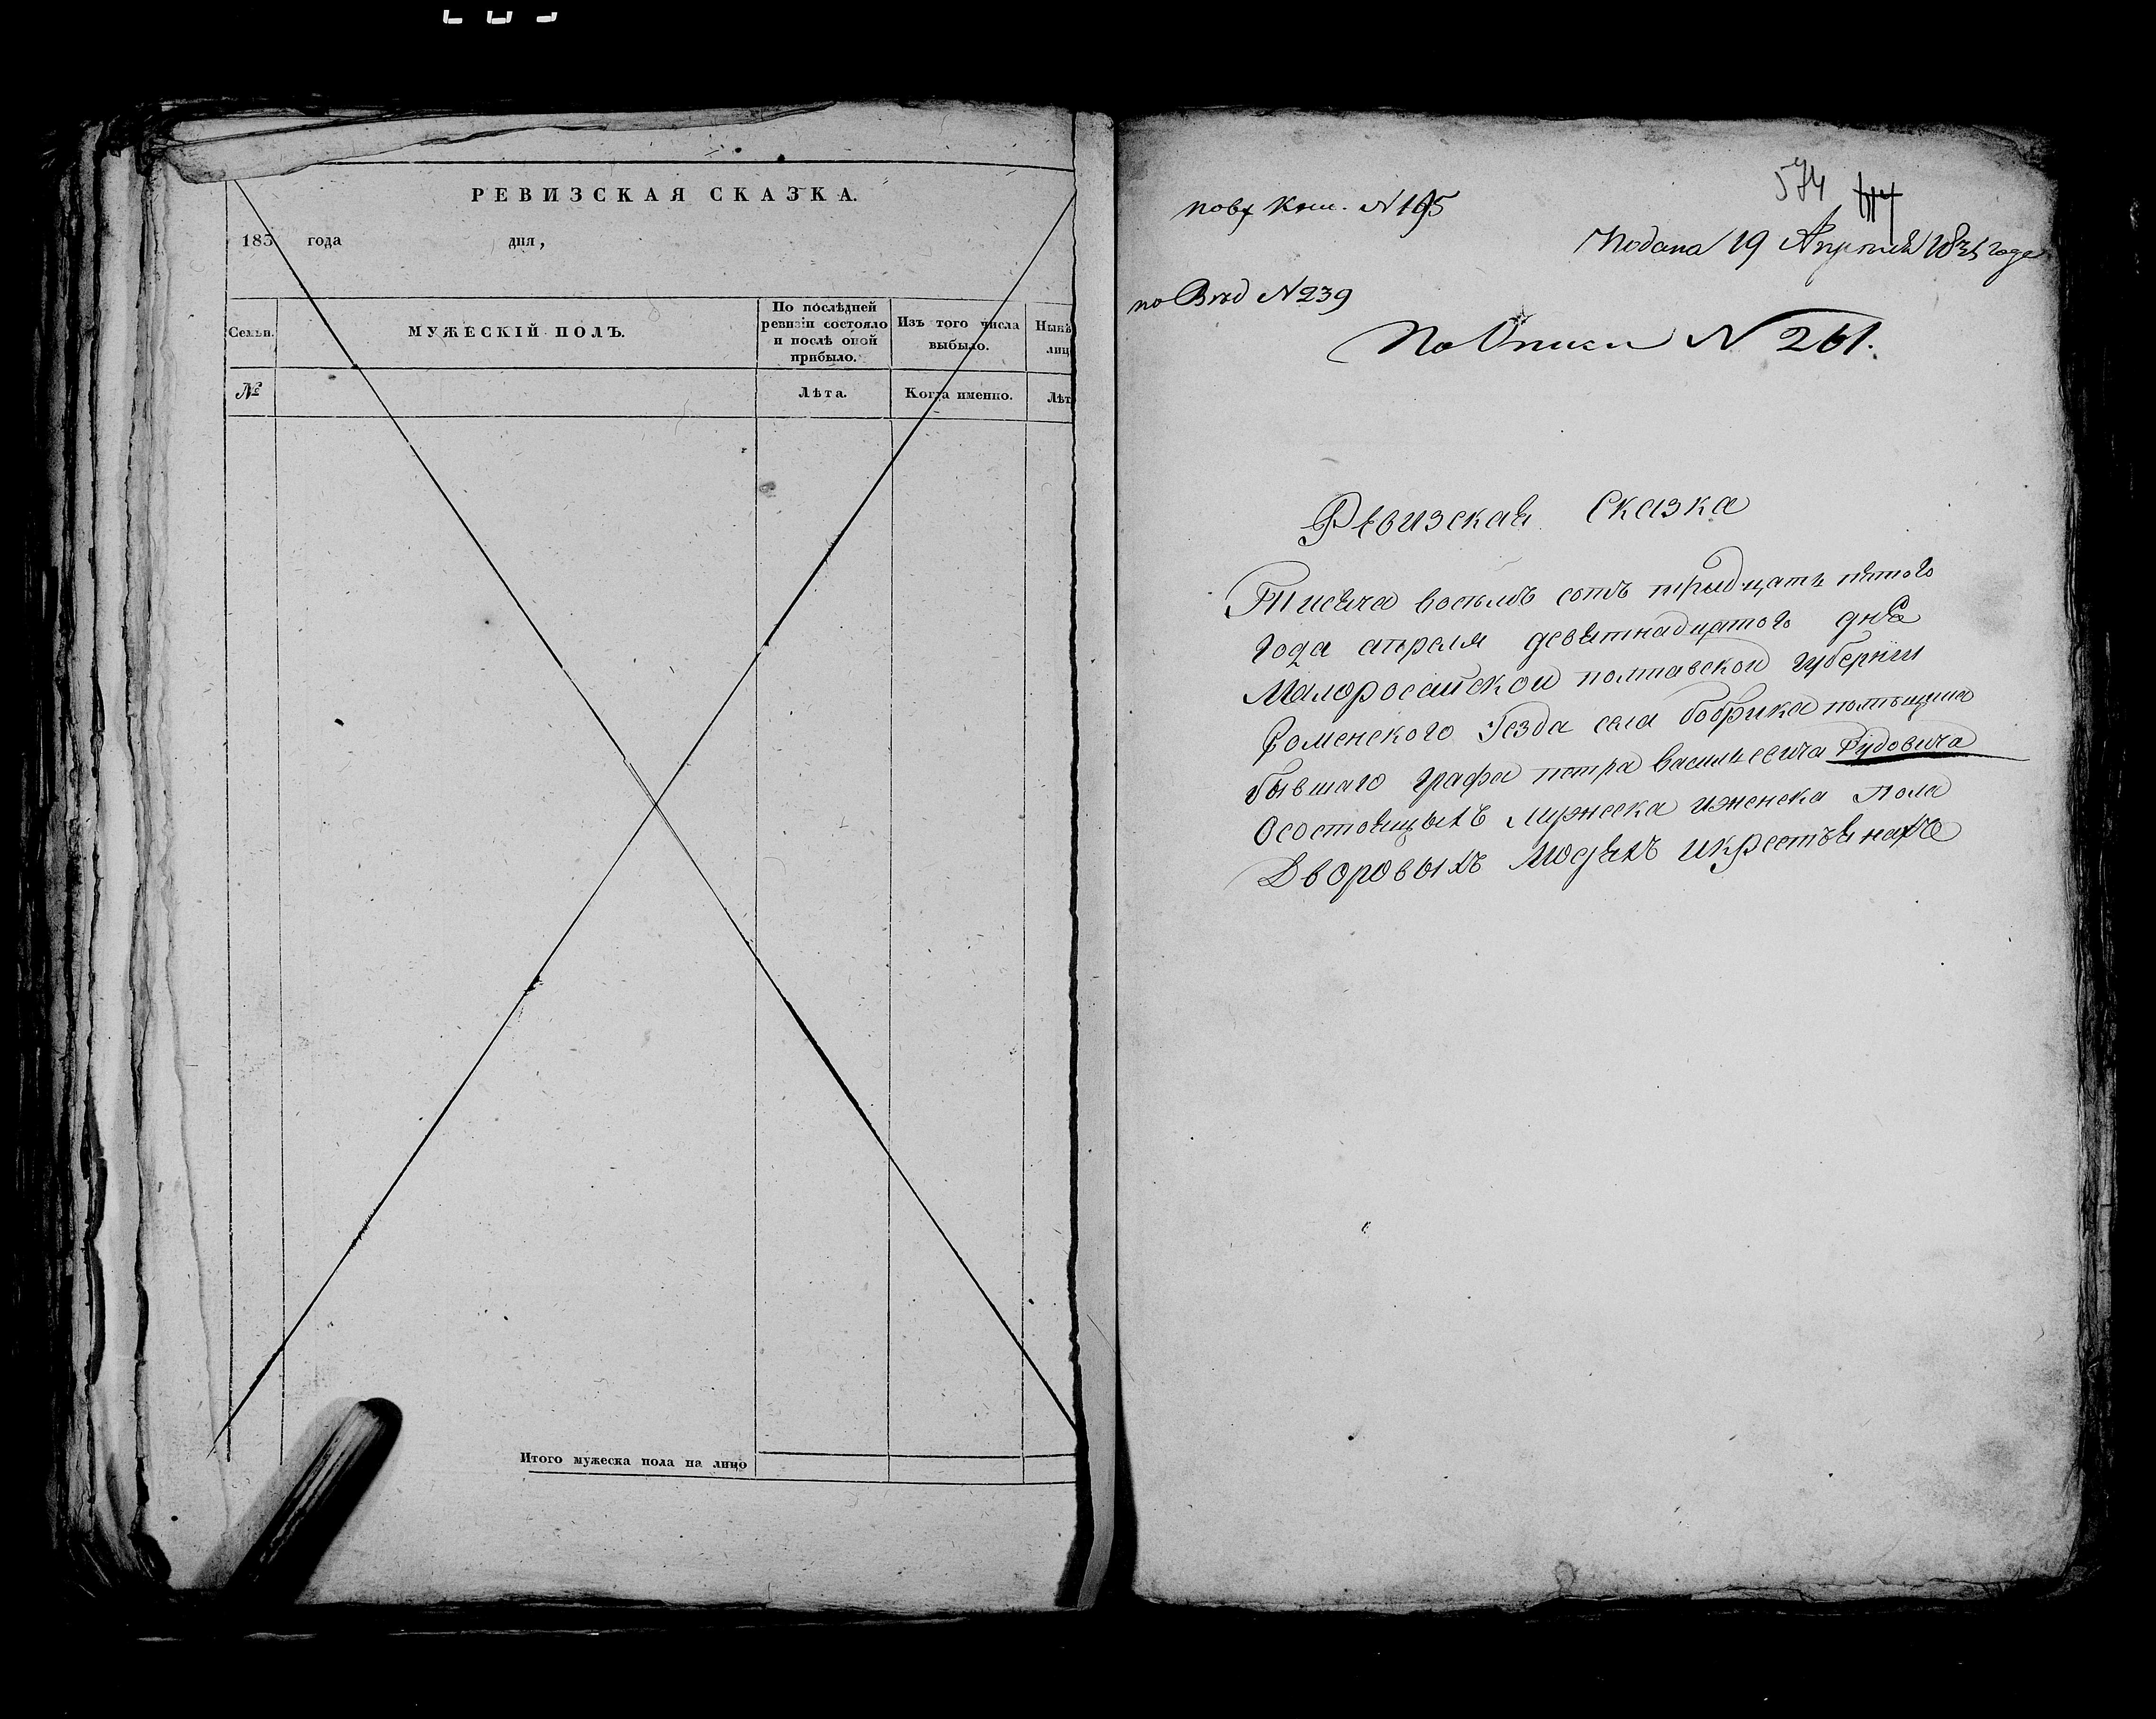 РЕВИЗСКАЯ СКАЗКА.
183 года дня,
Семьи.
МУЖЕСКІЙ ПОЛЪ.
По послѣдней
ревизіи состояло
и послѣ оной
прибыло.
Изъ того числа
выбыло.
Нынѣ
лиц
№
Лѣта.
Когда именно.
Лѣт
Итого мужеска пола на лицо
574
N 195
Подана 19 Апреля 1835 года
по Вѣд N 239
По Описи N 261.
Ревизская Сказка
Тисяча восемъ сотъ тридцать пятого
года апреля девятнадцатого дня
Малоросийской полтавской губерніи
Роменского Уезда села бобрика помъщика
бывшаго графа петра васильевича Гудовича
Осостоящыхъ мужеска иженска пола
Дворовыхъ людяхъ икрестъянахъ